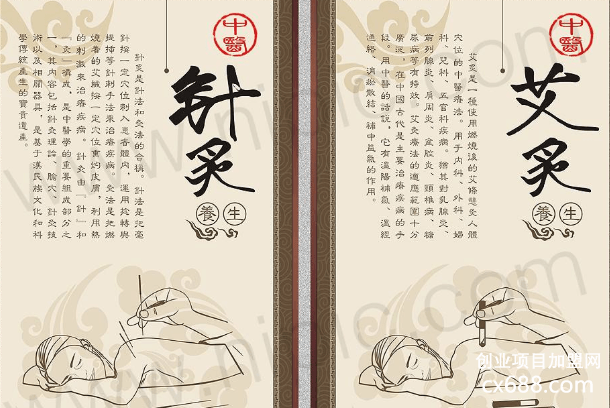 中醫
针灸
養生
針灸是針法和灸法的合稱。針法是把毫
針按一定穴位刺入患者體內，運用捻轉與
提插等針刺手法來治療疾病。灸法是把燃
燒着的艾絨按一定穴位熏灼皮膚，利用熱
的刺激來治療疾病。針灸由「針」和
「灸」構成，是中醫學的重要組成部分之
一，其內容包括針灸理論、腧穴、針灸技
術以及相關器具，是基於漢民族文化和科
學傳統產生的寶貴遺產。
中醫
艾灸
養生
艾灸是一種使用燃燒後的艾條懸灸人體
穴位的中醫療法。用于內科、外科、婦
科、兒科、五官科疾病，尤其對乳腺炎、
前列腺炎、肩周炎、盆腔炎、頸椎病、糖
尿病等有特效。艾灸療法的適應範圍十分
廣泛，在中國古代是主要治療疾病的手
段。用中醫的話說，它有溫陽補氣、溫經
通絡、消瘀散結、補中益氣的作用。
创业项目加盟网
cx688.com